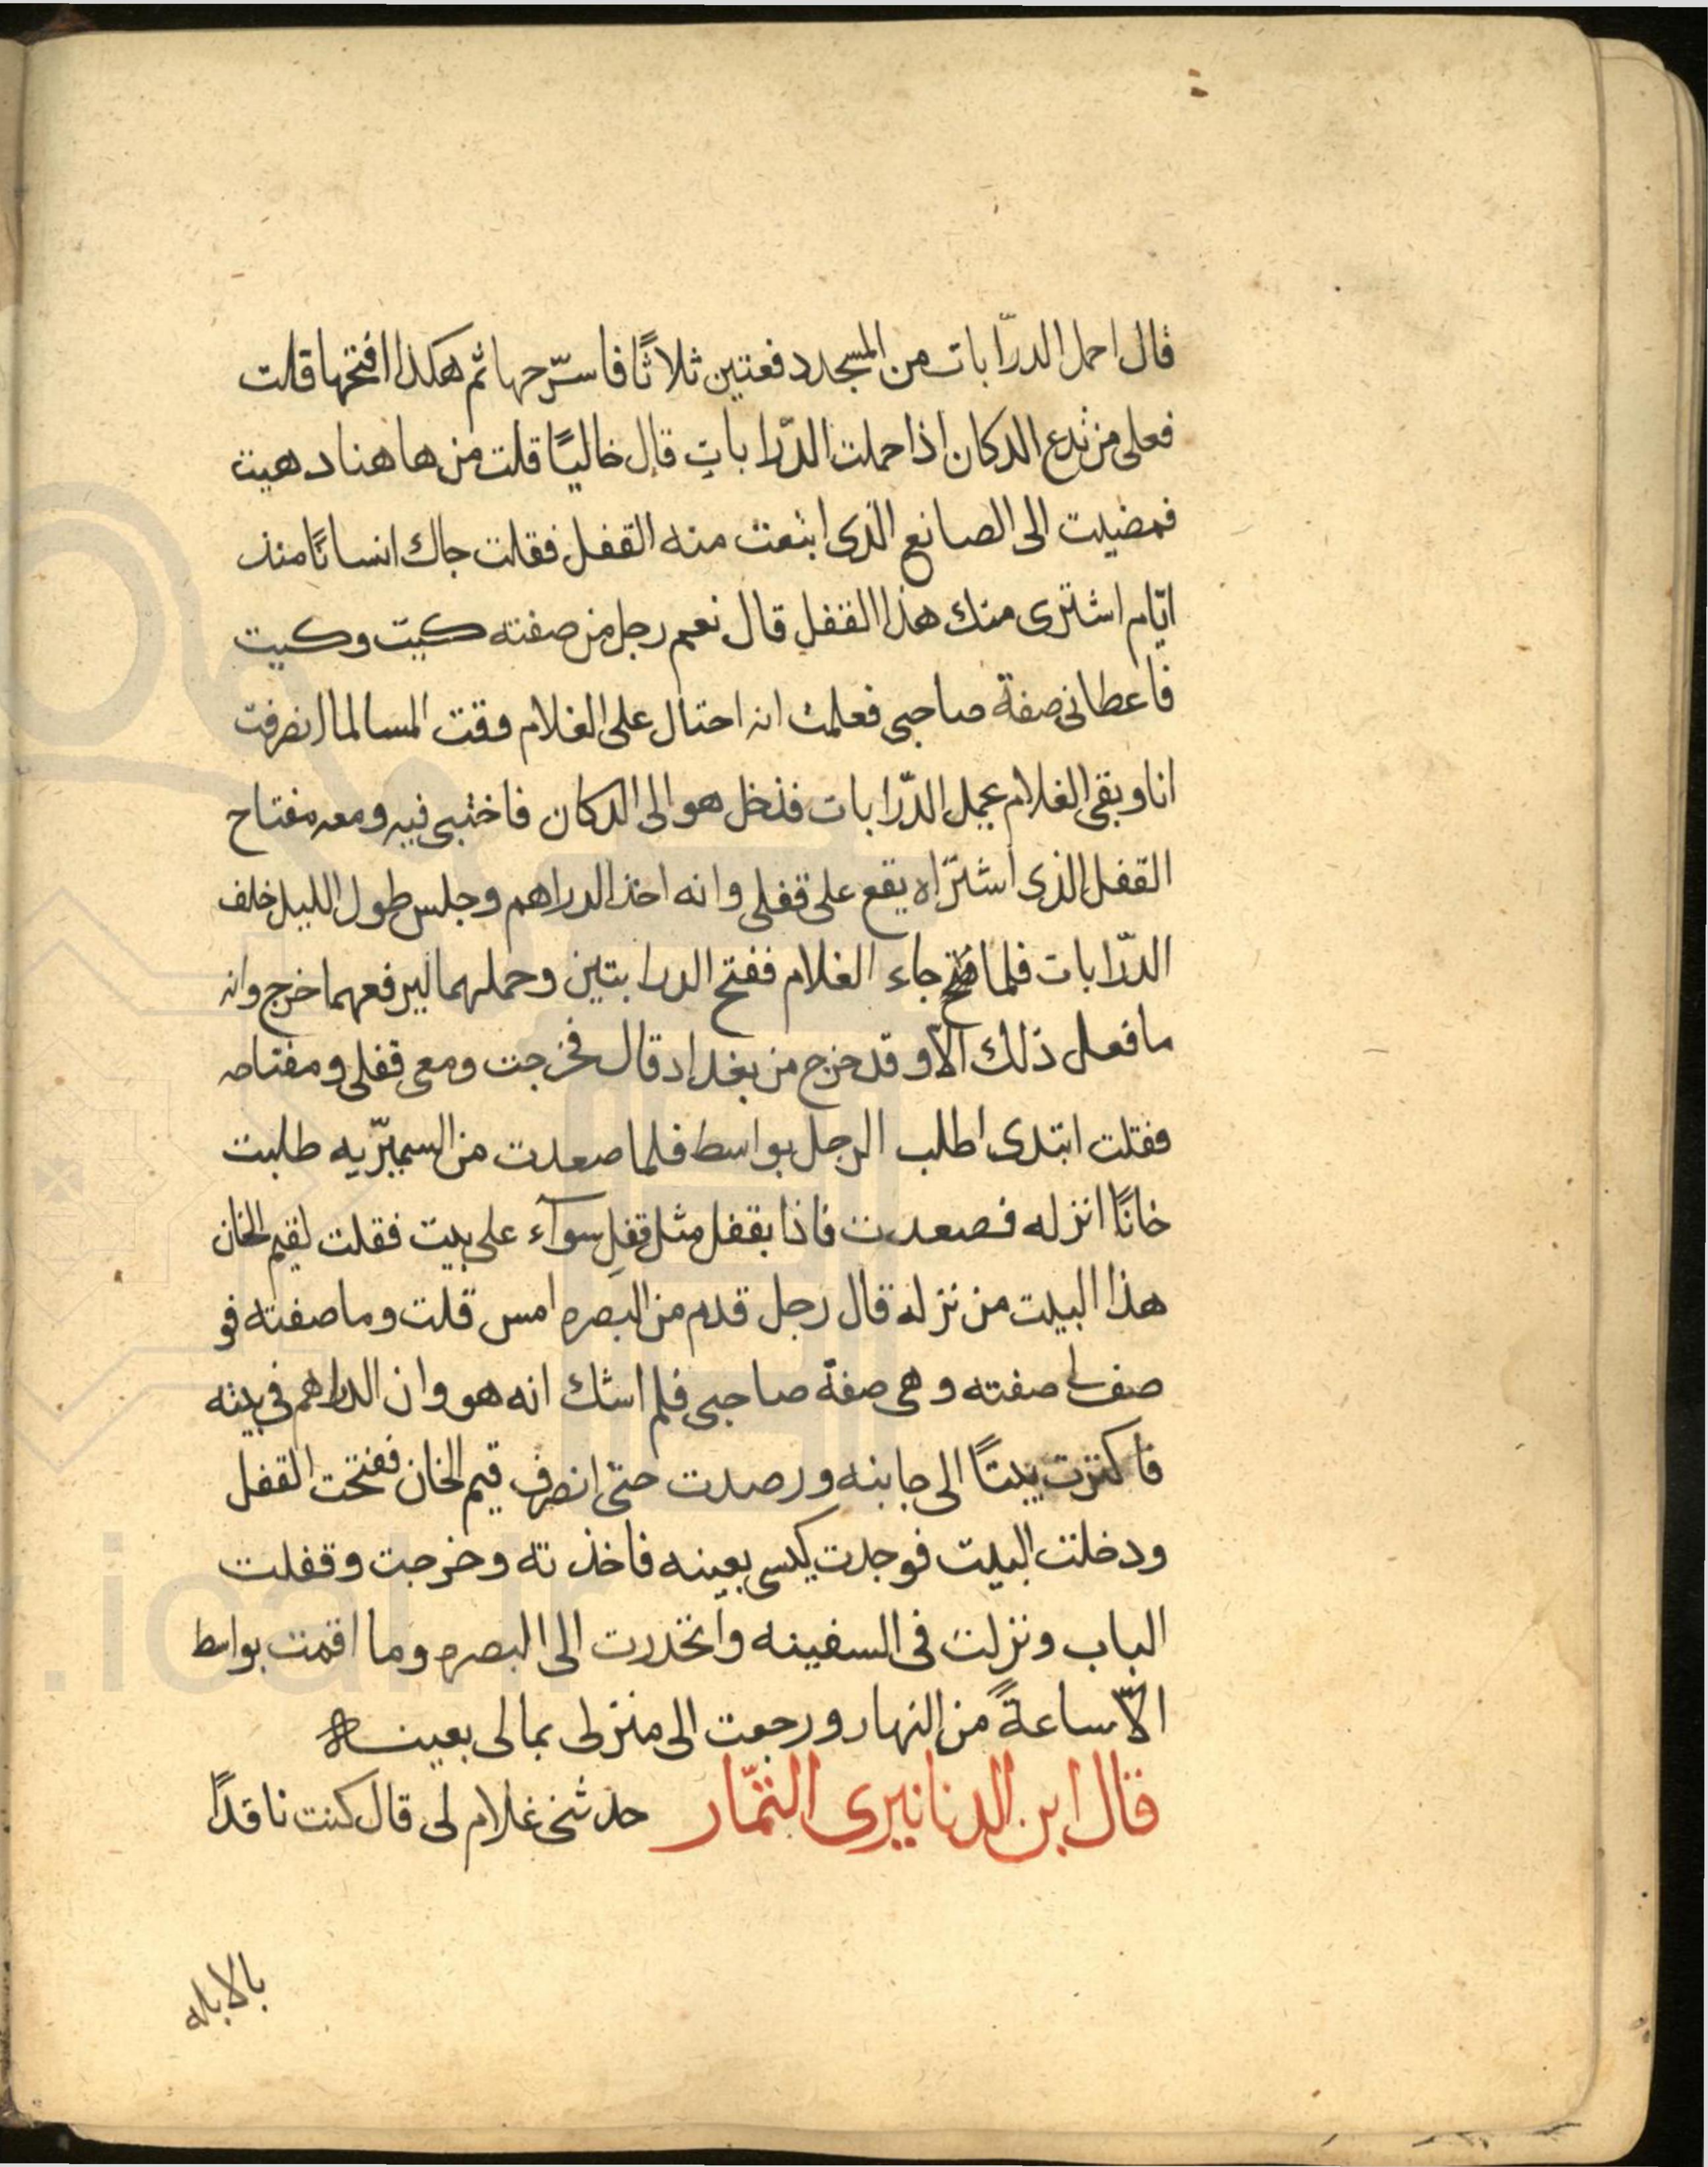 قال احمل الدرّابات من المسجد دفعتين ثلاثًا فاسرّحها ثم هكذا افتحها قلت
فعلى من تدع الدكان اذا حملت الدّرابات قال خاليًا قلت من هاهنا دهيت
فمضيت الى الصانع الذى ابتعت منه القفل فقلت جاك انسانًا منذ
ايّام اشترى منك هذا القفل قال نعم رجل من صفته كيت وكيت
فاعطانى صفة صاحبى فعلمت انه احتال على الغلام وقت المسا لما انصرفت
انا وبقى الغلام يحمل الدّرابات فدخل هو الى الدكان فاختبى فيه ومعه مفتاح
القفل الذى اشتراه يقع على قفلى وانه اخذ الدراهم وجلس طول الليل خلف
الدّرابات فلما جاء الغلام ففتح الدرابتين وحملهما ليرفعهما خرج وانه
ما فعل ذلك الاّ وقد خرج من بغداد قال فخرجت ومعى قفلى ومفتاحه
فقلت ابتدى اطلب الرجل بواسط فلما صعدت من السميريّه طلبت
خانًا انزله فصعدت فاذا بقفل مثل قفلِ سوآء على بيت فقلت لقيم الخان
هذا البيت من نزله قال رجل قدم من البصره امس قلت وما صفته فو
صف لى صفته وهى صفة صاحبى فلم اشك انه هو وان الدراهم فى بيته
فاكتريت بيتًا الى جانبه ورصدت حتى انصرف قيم الخان ففتحت القفل
ودخلت البيت فوجدت كيسى بعينه فاخذته وخرجت وقفلت
الباب ونزلت فى السفينه وانحدرت الى البصره وما اقمت بواسط
الاّ ساعةً من النهار ورجعت الى منزلى بمالى بعينه
قال ابن الدنانيرى التمّار حدثنى غلام لى قال كنت ناقدًا
بالابله